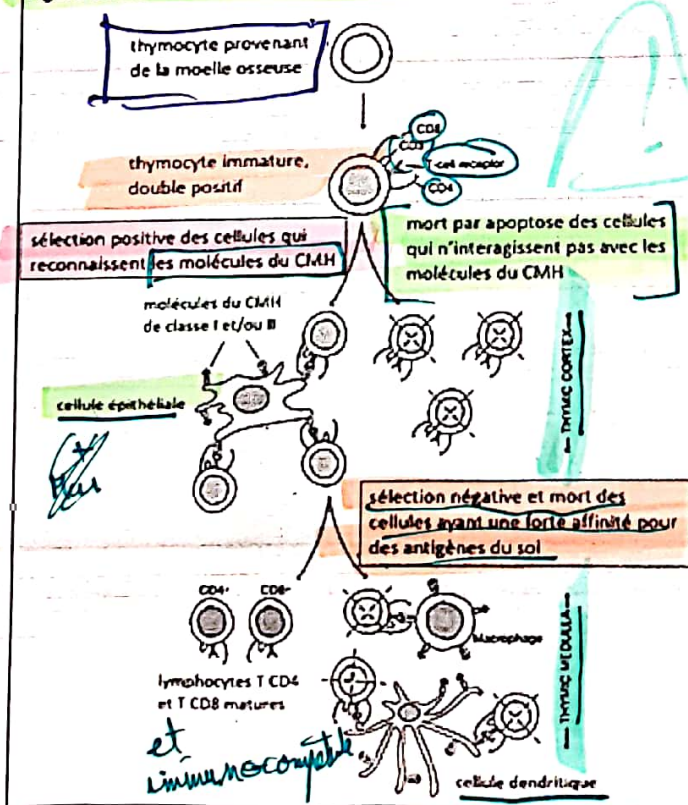 thymocyte provenant
de la moelle osseuse
CD8
CD3
T-cell receptor
CD4
thymocyte immature,
double positif
sélection positive des cellules qui
reconnaissent les molécules du CMH
mort par apoptose des cellules
qui n'interagissent pas avec les
molécules du CMH
molécules du CMH
de classe I et/ou II
cellule épithéliale
THYMIC CORTEX
sélection négative et mort des
cellules ayant une forte affinité pour
des antigènes du soi
CD4+
CD8+
Macrophage
lymphocytes T CD4
et T CD8 matures
et
THYMIC MEDULLA
cellule dendritique